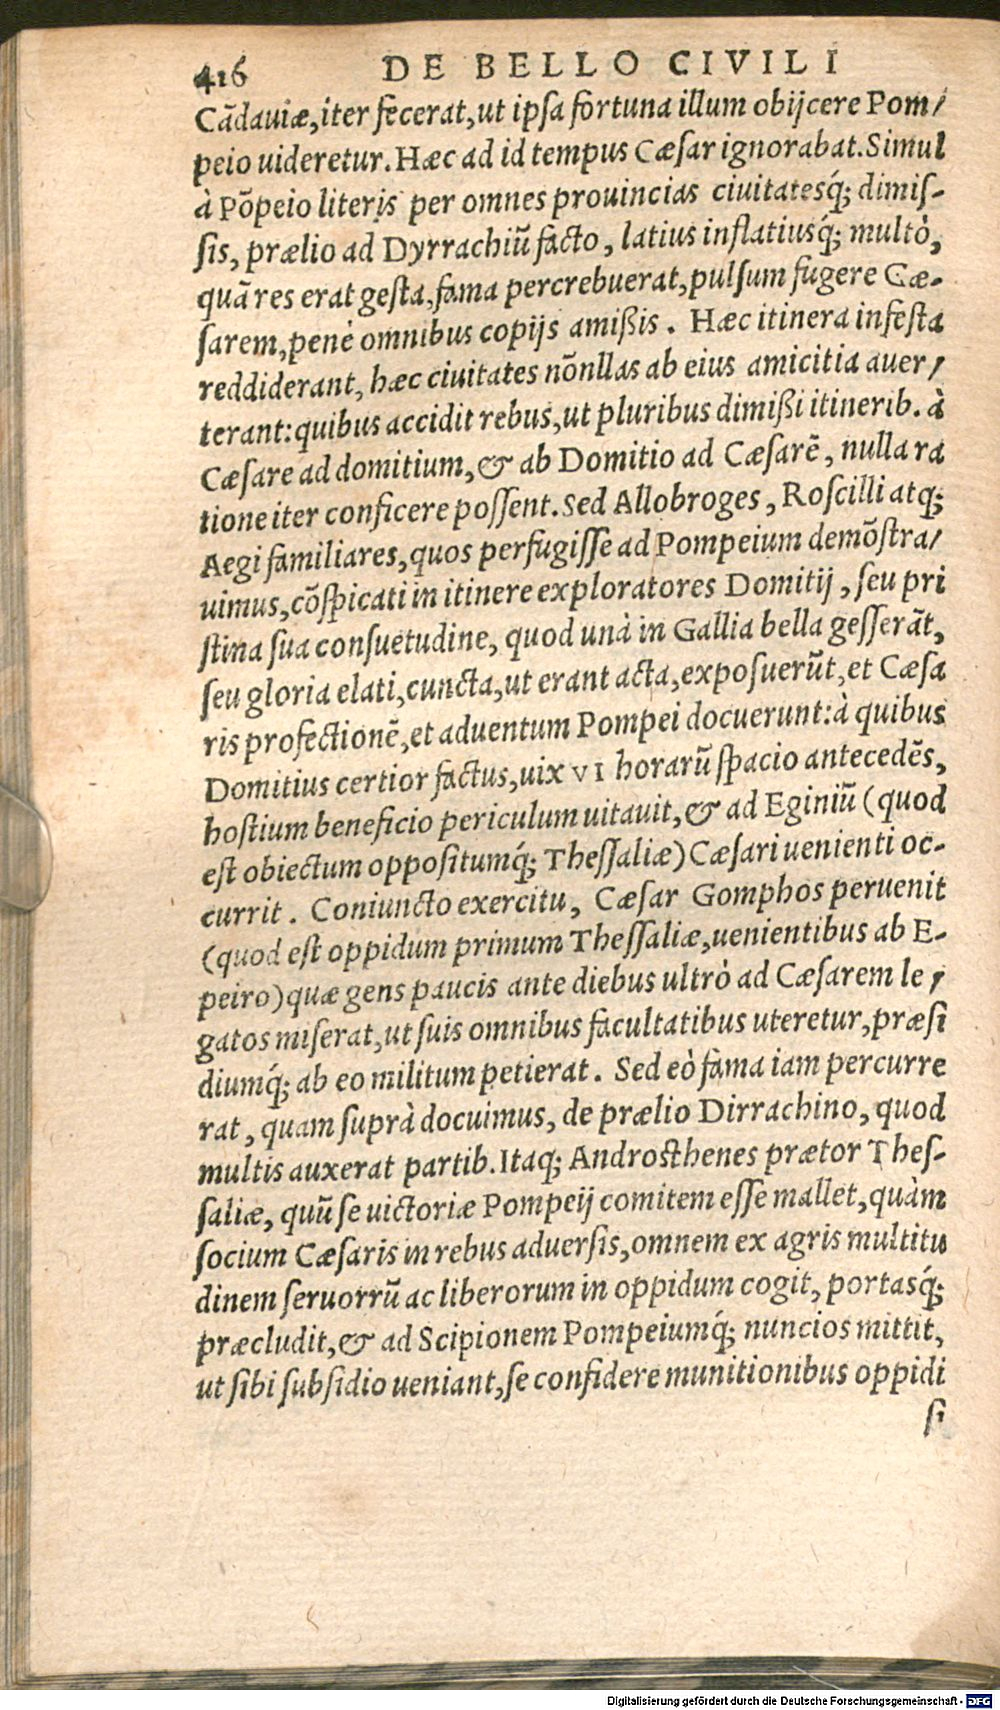 416 DE BELLO CIVILI
Cãdauiæ,iter fecerat,ut ipsa fortuna illum obijcere Pom/
peio uideretur.Hæc ad id tempus Cæsar ignorabat.Simul
à Põpeio literis per omnes prouincias ciuitatesq́; dimis-
sis, prælio ad Dyrrachiũ facto, latius inflatiusq́; multò,
quã res erat gesta,fama percrebuerat,pulsum fugere Cæ-
sarem,penè omnibus copijs amißis. Hæc itinera infesta
reddiderant, hæc ciuitates nõnllas ab eius amicitia auer/
terant:quibus accidit rebus,ut pluribus dimißi itinerib. à
Cæsare ad domitium,& ab Domitio ad Cæsarẽ, nulla ra
tione iter conficere possent.Sed Allobroges, Roscilli atq;
Aegi familiares,quos perfugisse ad Pompeium demõstra/
uimus,cõspicati in itinere exploratores Domitij, seu pri
stina sua consuetudine, quod unà in Gallia bella gesserãt,
seu gloria elati,cuncta,ut erant acta,exposuerũt,et Cæsa
ris profectionẽ,et aduentum Pompei docuerunt:à quibus
Domitius certior factus,uix VI horarũ spacio antecedẽs,
hostium beneficio periculum uitauit,& ad Eginiũ (quod
est obiectum oppositumq́; Thessaliæ)Cæsari uenienti oc-
currit. Coniuncto exercitu, Cæsar Gomphos peruenit
(quod est oppidum primum Thessaliæ,uenientibus ab E-
peiro)quæ gens paucis ante diebus ultrò ad Cæsarem le/
gatos miserat,ut suis omnibus facultatibus uteretur,præsi
diumq́; ab eo militum petierat. Sed eò fama iam percurre
rat, quam suprà docuimus, de prælio Dirrachino, quod
multis auxerat partib.Itaq; Androsthenes prætor Thes-
saliæ, quũ se uictoriæ Pompeij comitem esse mallet,quàm
socium Cæsaris in rebus aduersis,omnem ex agris multitu
dinem seruorrũ ac liberorum in oppidum cogit, portasq́;
præcludit,& ad Scipionem Pompeiumq́; nuncios mittit,
ut sibi subsidio ueniant,se confidere munitionibus oppidi
si
Digitalisierung gefördert durch die Deutsche Forschungsgemeinschaft - DFG